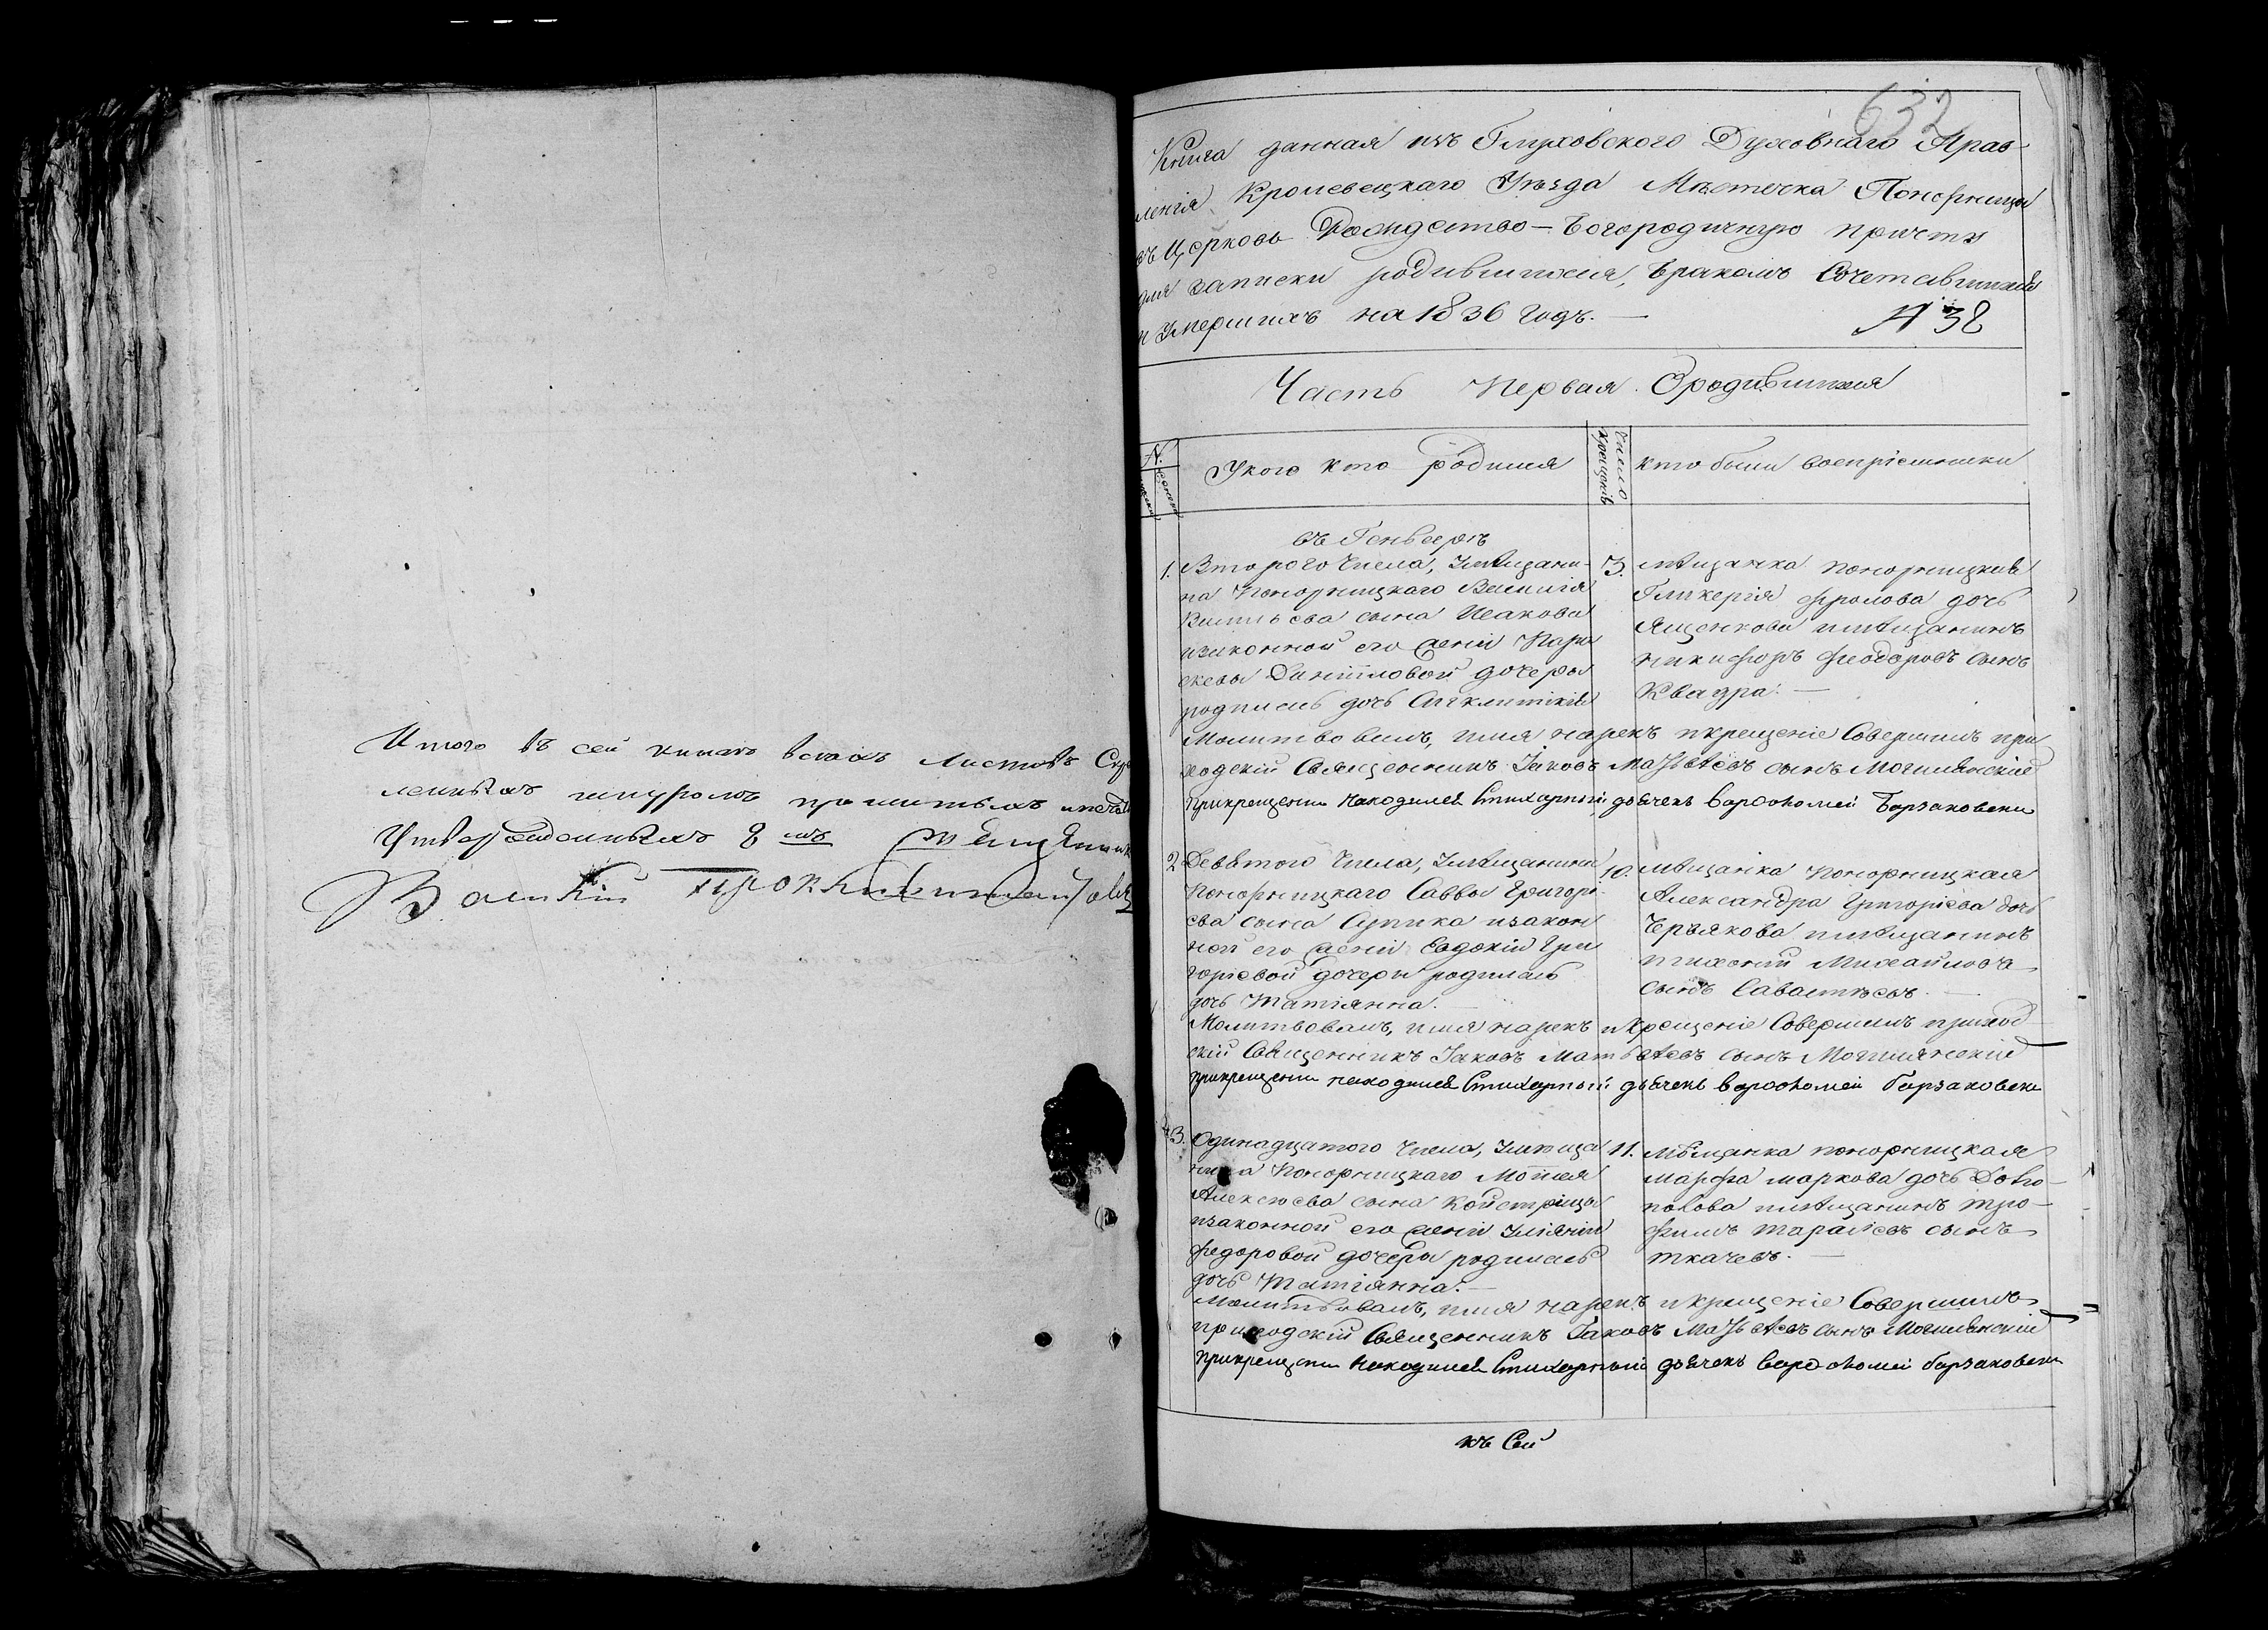 Итого въ сей книгѣ всѣхъ листовъ
шнуромъ прошитыхъ
8 мъ
632
Книга данная изъ Глуховского Духовнаго Прав-
ленія Кролевецкаго Уѣзда Мѣстечка Понорницы
въ Церковь Рождество-Богородичную причту
для записки родившихся, бракомъ Сочетавшихся
и Умершихъ на 1836 Годъ. —
№ 38
Часть Первая О родившихся
У кого кто родился
Число крещенія
кто были воспріемники
въ Генварѣ
1. Второго Числа, Умѣщани-
на Понорницкаго Василія
Васильева сына Исакова
изаконной его жены Пара
скевы Даніиловой дочеры
родилась дочь Сигклитикія
3. мѣщанка понорницкая
Гликерія Фролова дочь
Ященкова имѣщанинъ
никифоръ Феодоровъ сынъ
Квадра. —
Молитвовалъ, имя нарекъ икрещеніе Совершилъ при
ходскій Священникъ Іаковъ Матвѣевъ сынъ Могилянскій
прикрещеніи находился Стихарный дьячекъ варфоломей Борзаковски
2 Девятого Числа, Умѣщанина
Понорницкаго Саввы Григорі-
ева сына Супика изакон
ной его жены Евдокіи Гри
горіевой дочеры родилась
дочь Татіанна. —
10. мѣщанка понорницкая
Александра Григоріева дочь
Черьякова имѣщанинъ
Михайловъ
сынъ Савостѣевъ. —
Молитвовалъ, имя нарекъ икрещеніе Совершилъ приход
скій Священникъ Іаковъ Матвѣевъ сынъ Могилянскій
прикрещеніи находился Стихарный дьячекъ варфоломей борзаковски
3. Одинадцатого Числа, Умѣща
нина Понорницкаго Мойсея
Алексѣева сына
изаконной его жены Уліяніи
федоровой дочеры родилась
дочь Татіанна. —
11. мѣщанка понорницкая
марфа маркова дочь Довго-
полова имѣщанинъ тро-
фимъ тарасевъ сынъ
ткачевъ. —
Молитвовалъ, имя нарекъ икрещеніе Совершилъ
приходскій Священникъ Іаковъ Матвѣевъ сынъ Могилянскій
прикрещеніи находился Стихарный дьячекъ варфоломей борзаковски
къ Сей